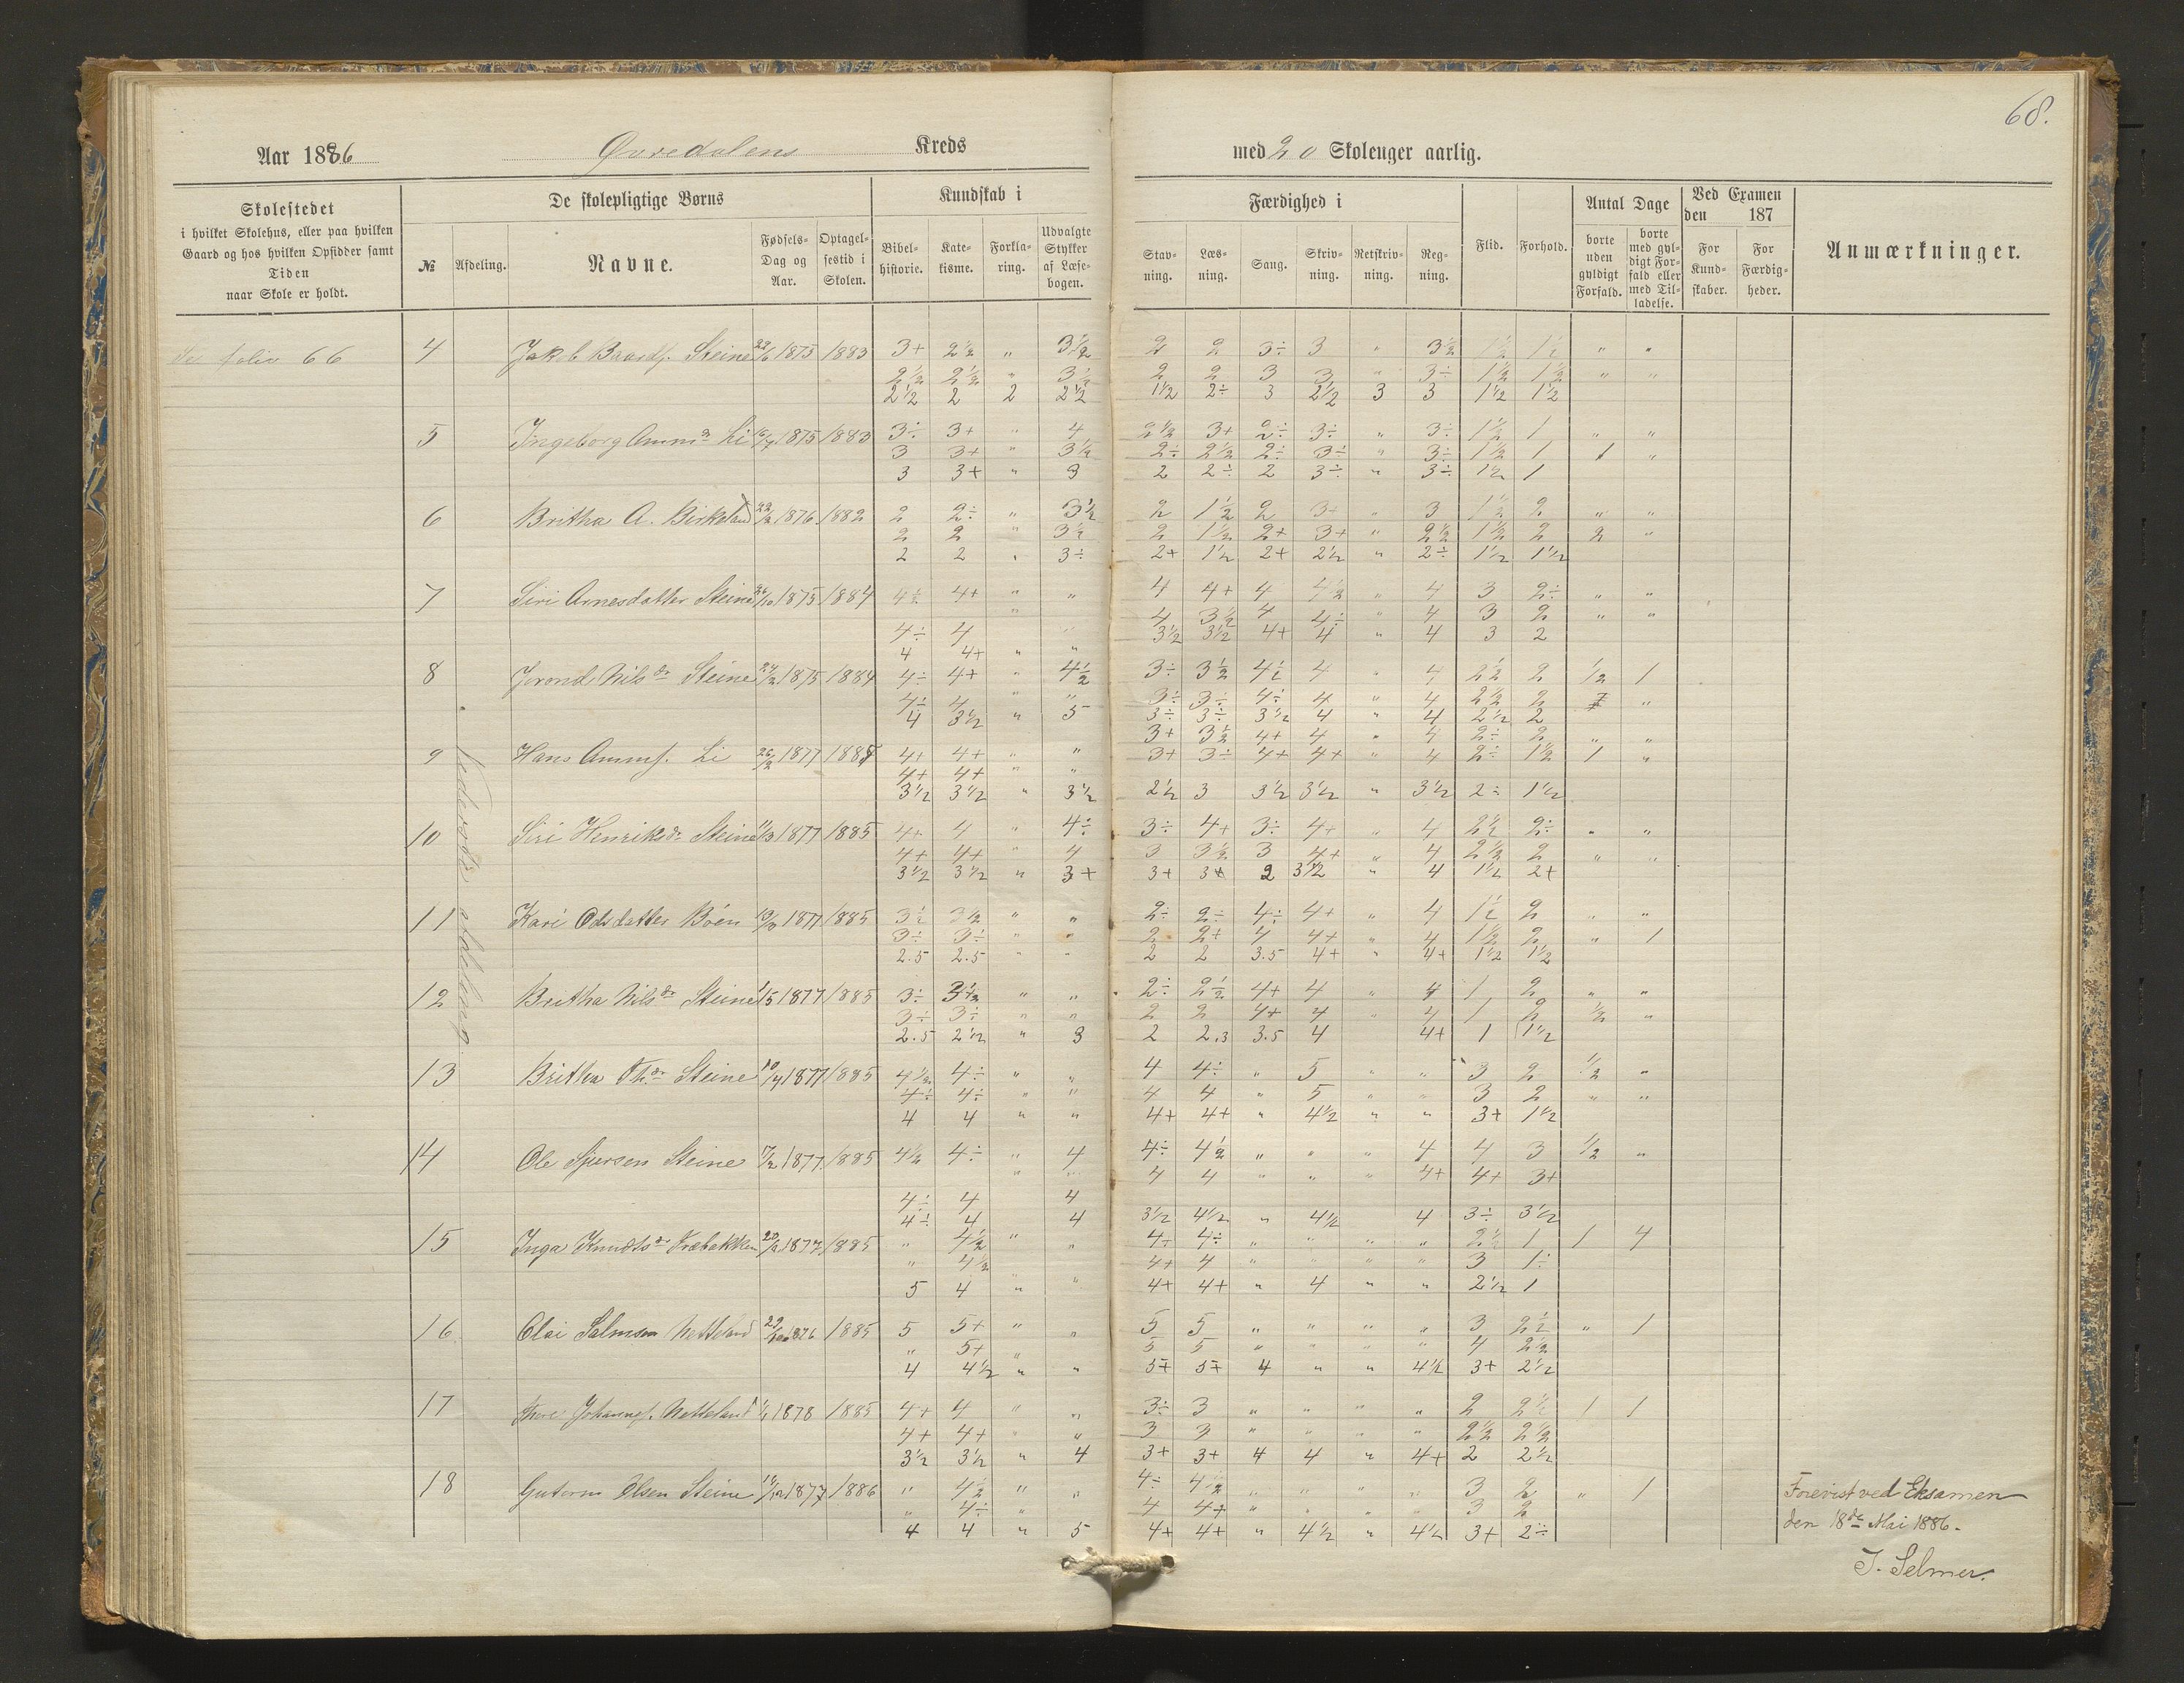 68.
Aar 1886 Øvredalens Kreds med 20 Skoleuger aarlig.
Skolestedet
i hvilket Skolehus, eller paa hvilken
Gaard og hos hvilken Opsidder samt
Tiden
naar Skole er holdt.
De skolepligtige Børns
№ Afdeling. Navne. Fødsels-Dag og Aar. Optagelsestid i Skolen.
Kundskab i
Bibelhistorie. Katekisme. Forklaring. Udvalgte Stykker af Læsebogen.
Færdighed i
Stavning. Læsning. Sang. Skrivning. Retskrivning. Regning.
Flid. Forhold.
Antal Dage
borte uden gyldigt Forfald. borte med gyldigt Forfald eller med Tilladelse.
Ved Examen den 187
For Kundskaber. For Færdigheder.
Anmærkninger.
Se folio 66
Nederste afdeling
4 Jakob Baards. Steine 22/6 1875 1883 3+ 2½ " 3½ 2 2 3÷ 3 " 3½ 1½ 1½ " "
2½ 2½ " 3½ 2 2 3 3 " 3÷ 1½ 1½ " "
2½ 2 2 2½ 1½ 2÷ 3 2½ 3 3 1½ 1½
5 Ingeborg Amm. Li 1875 1883 3÷ 3+ " 4 2½ 3+ 2÷ 3÷ " 3÷ 1½ 1 " "
3 3+ " 3½ 2÷ 2½ 2÷ 3÷ " 3÷ 1½ 1 1 "
3 3+ " 3 2 2÷ 2 3÷ " 3÷ 1½ 1
6 Britha A. Birkeland 22/2 1876 1882 2 2÷ " 3½ 2 1½ 2 3÷ " 3 1½ 2 " "
2 2 " 3½ 2 1½ 2+ 3+ " 2½ 1½ 2 2 "
2 2 " 3÷ 2+ 1½ 2+ 2½ " 2÷ 1½ 1½
7 Siri Arnesdatter Steine 1875 1884 4½ 4+ " " 4 4+ 4 4½ " 4 3 2÷ " "
4÷ 4 4 3½ 4 4÷ " 4 3 2 " "
4 4+ " " 3½ 3½ 4+ 4 " 4 3 2
8 Jorond Nilsdr Steine 24/2 1875 1884 4÷ 4+ " 4½ 3÷ 3½ 4½ 4 " 4 2½ 2 ½ 1
4÷ 4 " " 3÷ 3÷ 4÷ 4 " 4 2½ 2 "
4 3½ " 5 3÷ 3÷ 3½ 4 " 4 2½ 2
9 Hans Amms. Li 26/2 1877 1885 4+ 4+ " " 3+ 3½ 4+ 4 " 4 2÷ 2 " "
4+ 4+ " " 3+ 3÷ 4+ 4+ " 4 2÷ 1½ 1 "
3½ 3½ " 3½ 2½ 3 3½ 3½ " 3½ 2÷ 1½
10 Siri Henriksdr Steine 11/3 1877 1885 4+ 4 " 4÷ 3÷ 4+ 3÷ 4+ " 4 2½ 2÷ " "
4+ 4+ " 4 3 3½ 3 4+ " 4 2½ 2 " "
3½ 3½ " 3+ 3+ 3+ 2 3½ " 4 1½ 2+
11 Kari Odsdatter Böen 1877 1885 3½ 3½ " " 2÷ 2÷ 4÷ 4+ " 4 1½ 2 " "
3÷ 3÷ " " 2 2+ 4 4+ " 4 1½ 2 " 1
2.5 2.5 " " 2 2 3.5 4+ " 4+ 1½ 1½
12 Britha Nilsdr Steine 1/5 1877 1885 3÷ 3½ " " 2÷ 2½ 4+ 4 " 4 1 2 " "
3÷ 3÷ " " 2 2 4+ 4 " 4 1 2 ½ "
2.5 2½ " 3 2 2.3 3.5 4 4+ 1 1½
13 Britha Th.dr Steine 10/4 1877 1885 4½ 4÷ " " 4 4÷ " 5 " " 3 2 ½ "
4÷ 4÷ " " 4 4 " 5 " " 3 2 " "
4 4 " " 4+ 4+ " 4½ " " 3+ 1½
14 Ole Sjursen Steine 7/2 1877 1885 4½ 4÷ " 4 4÷ 4½ " " " 4 4 3 ½ "
4÷ 4 4 4 4 " " " 4+ 4+ 3+
4÷ 4 4 3½ 4½ " 4½ 4 3÷ 3½
15 Inga Knudtsdr Træbakken 1877 1885 " 4½ " " 4+ 4÷ " " " " 2½ 1 1 4
" 4½ 4+ 4 " " " " 3 1÷
5 4 " " 4+ 4+ " 4 " " 2½ 1
16 Olai Salmsen Netteland 1876 1885 5 5+ " " 5 5 " " " " 3 2½ " 1
" 5+ " 5 5 " " " " 4 2½
4 4½ " " 5+ 5+ 4 " " 4½ 3+ 2½
17 Johannes. Netteland 1878 1885 4+ 4 " " 3÷ 3 " " " " 2 2½ 1 1
4+ 4+ " " 3 3 " " " " 2½ 2½
3½ 3½ " 4 3+ 3+ 4 4 " 4+ 2 2½
18 Gutorm Olsen Steine 1877 1886 " 4½ " " 4÷ 4½ " " " " 3 2 " 1
" 4÷ " " 4 4+ " " " " 3 2
4 4 " 5 4+ 4+ " 4½ " 4½ 3+ 2÷
Forevist ved Eksamen
den 18de Mai 1886.
J. Selmer.